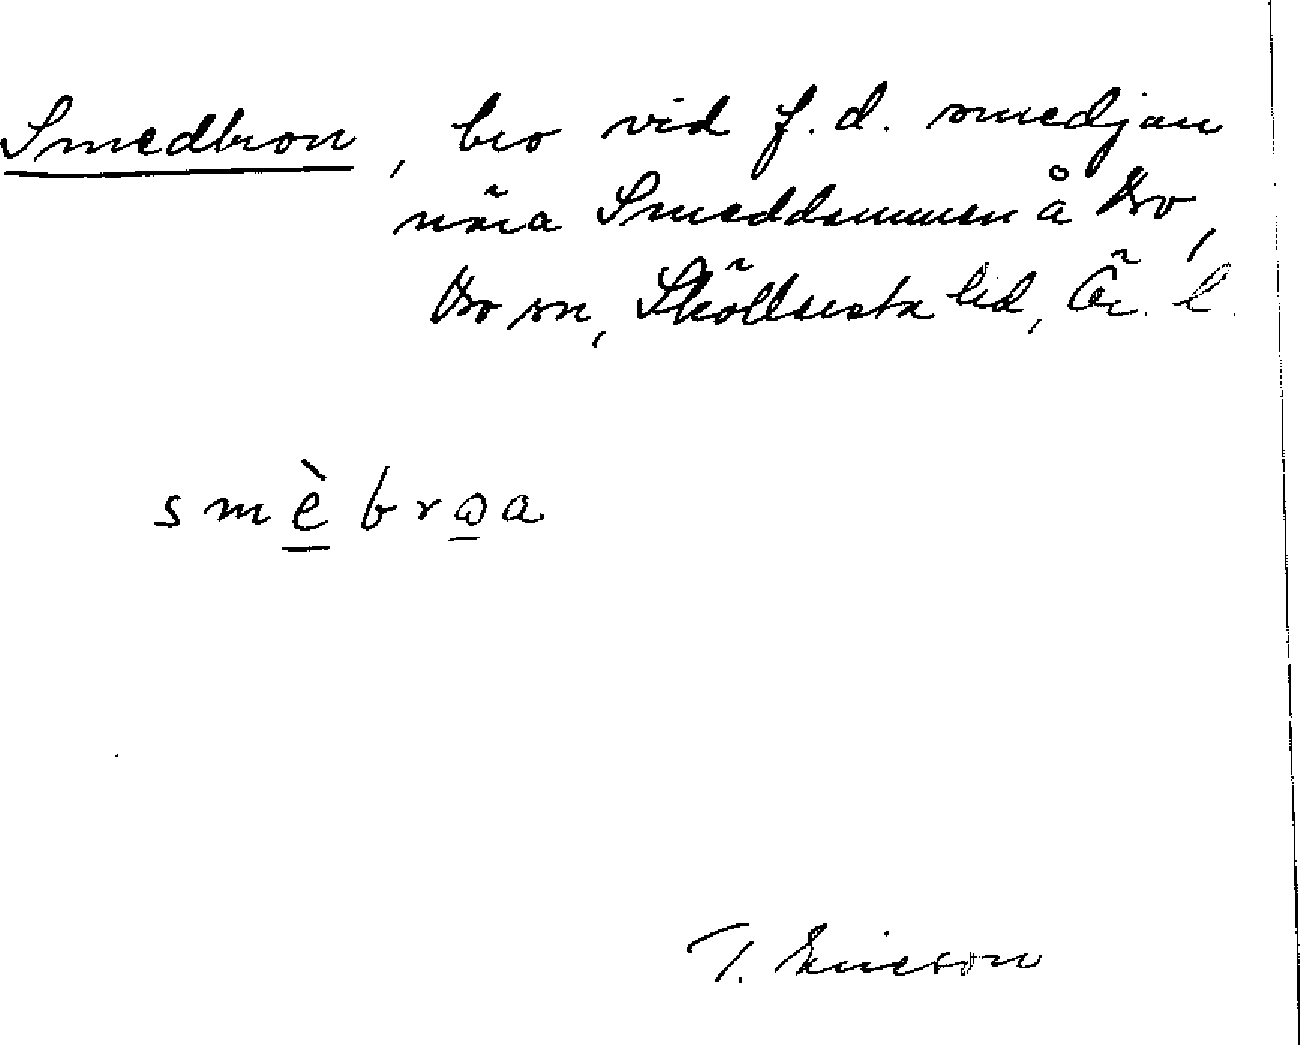 Smedbron, bro vid f. d. smedjan
nära Smeddammen å Bo,
Bo sn, Sköllersta hd, Ör. l.
smèbroa
T. Ericson